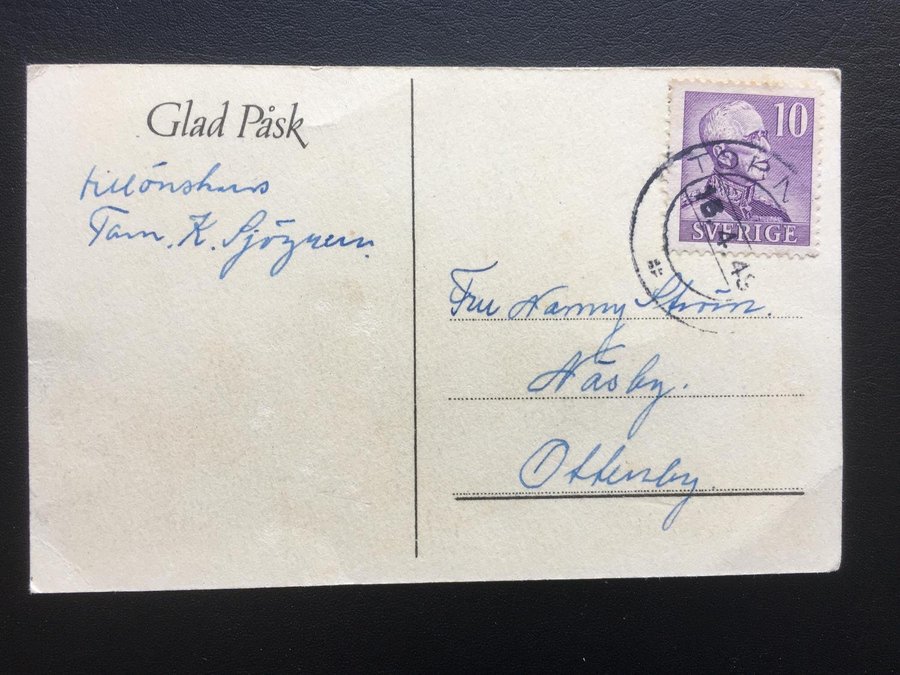 Glad Påsk
tillönskas
Fam. K. Sjögren.
10
SVERIGE
Fru Nanny Ström.
Näsby.
Ottenby